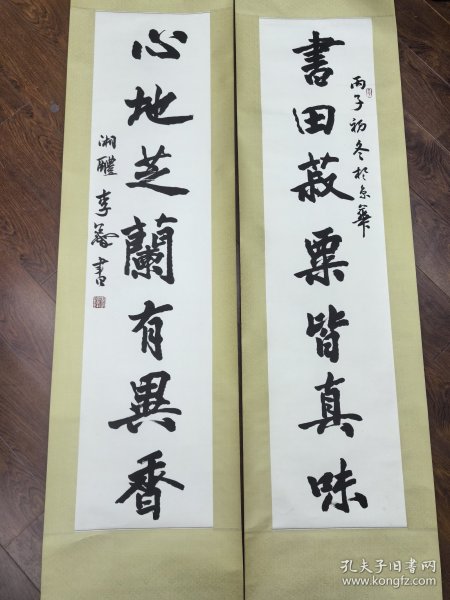 書田菽粟皆真味
丙子初冬於京華
心地芝蘭有異香
湘醴李
書
孔夫子旧书网
www.kongfz.com